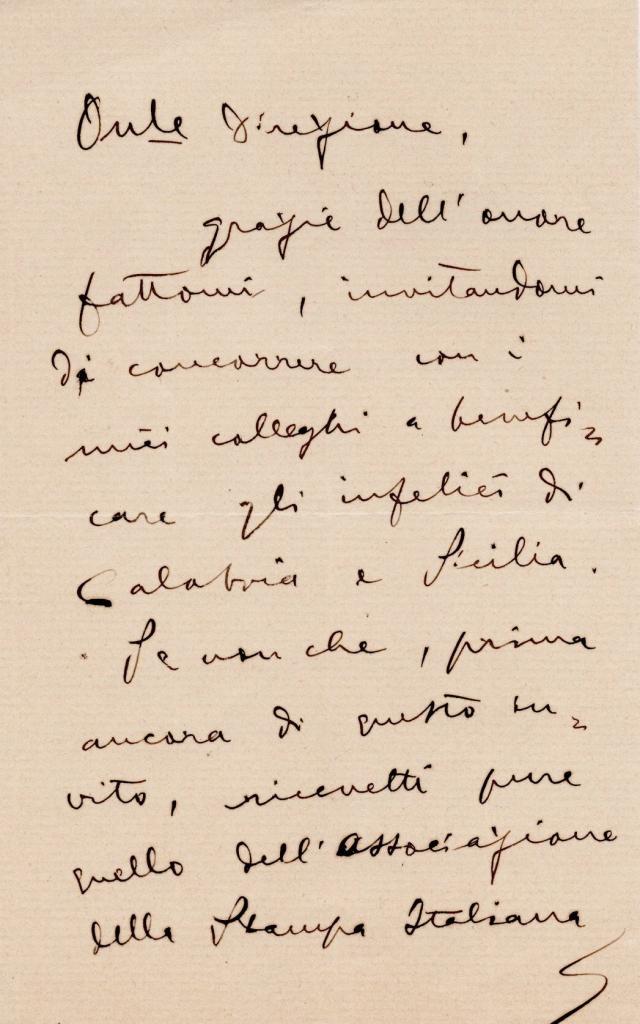 Onle Direzione,
grazie dell'onore
fattomi, invitandomi
di concorrere con i
miei colleghi a benefi=
care gli infelici di
Calabria e Sicilia.
Se non che, prima
ancora di questo in=
vito, ricevetti pure
quello dell'Associazione
della Stampa Italiana